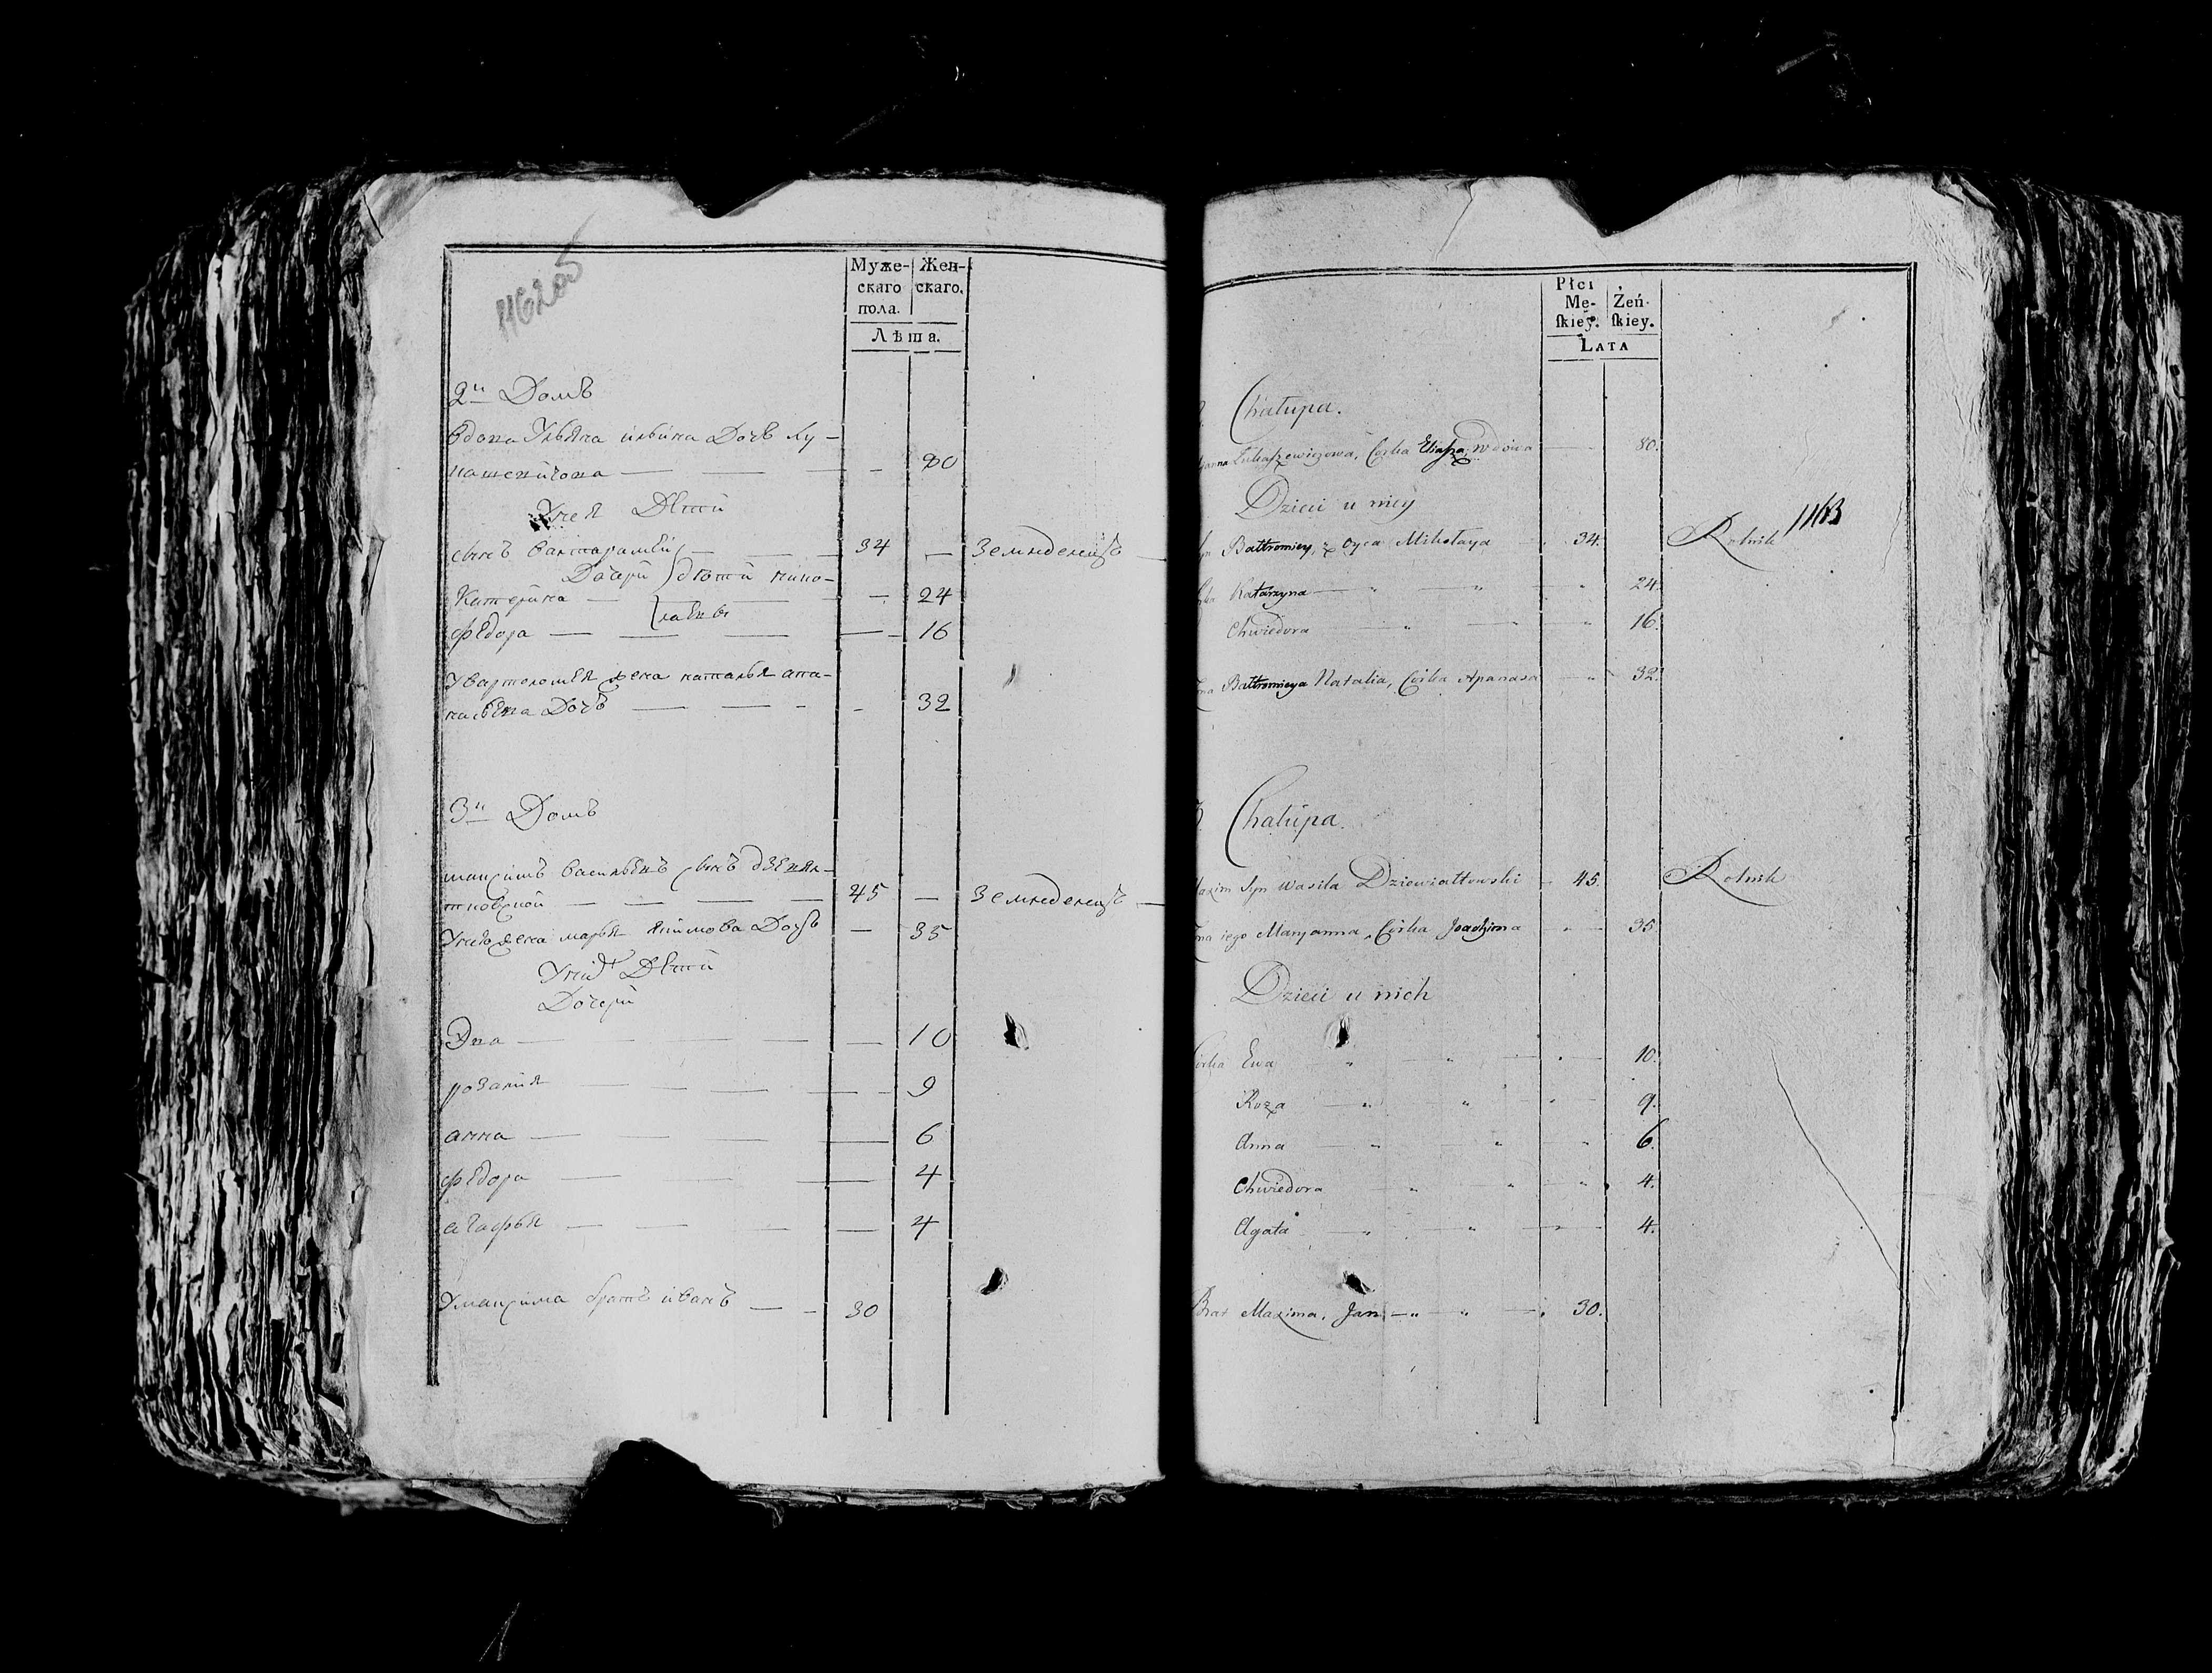 Муже- Жен-
скаго скаго.
пола.
Лѣта.
2й Домъ
вдова Ульяна ильина Дочь Лу-
кашевичова — 80
У нея Дети
сынъ Валтарамей — 34 — Земледелецъ
Дочери
Катерина — 24
федора — 16
У Вартоломея жена наталья апа-
насова Дочь — 32
3й Домъ
максимъ васильевъ сынъ дзевял-
товской — 45 — Земледелецъ
У него жена марья якимова Дочь — 35
У них Дети
Дочери
Эва — 10
розалия — 9
анна — 6
федора — 4
агафья — 4
У максима братъ иванъ — 30
Płci
Mę- Żeń-
ſkiey. ſkiey.
LATA
Chałupa.
Łukaszewiczowa, Córka Eliasza, Wdowa — 80.
Dzieci u niey
1163
Bałtromiey, z oyca Mikołaya — 34. Rolnik
Katarzyna — 24.
Chwiedora — 16.
Bałtromieya Natalia, Córka Apanasa — 32.
Chałupa.
Maxim Syn Wasila Dziewiałtowski — 45. Rolnik
żona iego Maryanna, Córka Joachima — 35
Dzieci u nich
Córka Ewa — 10.
Roza — 9.
Anna — 6.
Chwiedora — 4.
Agata — 4.
Brat Maxima, Jan — 30.